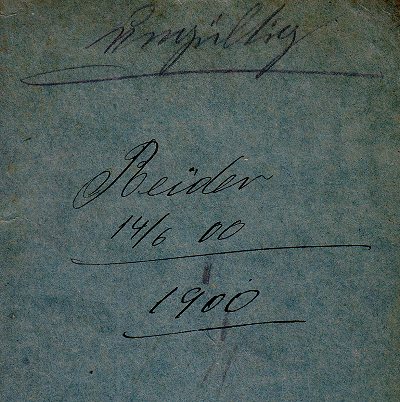 Ungültig
Reider
14/6 00
1900